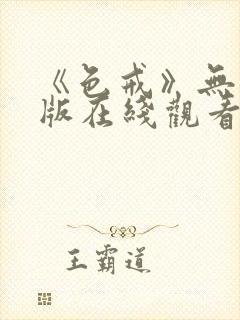 《色戒》無
版在綫觀看
王霸道